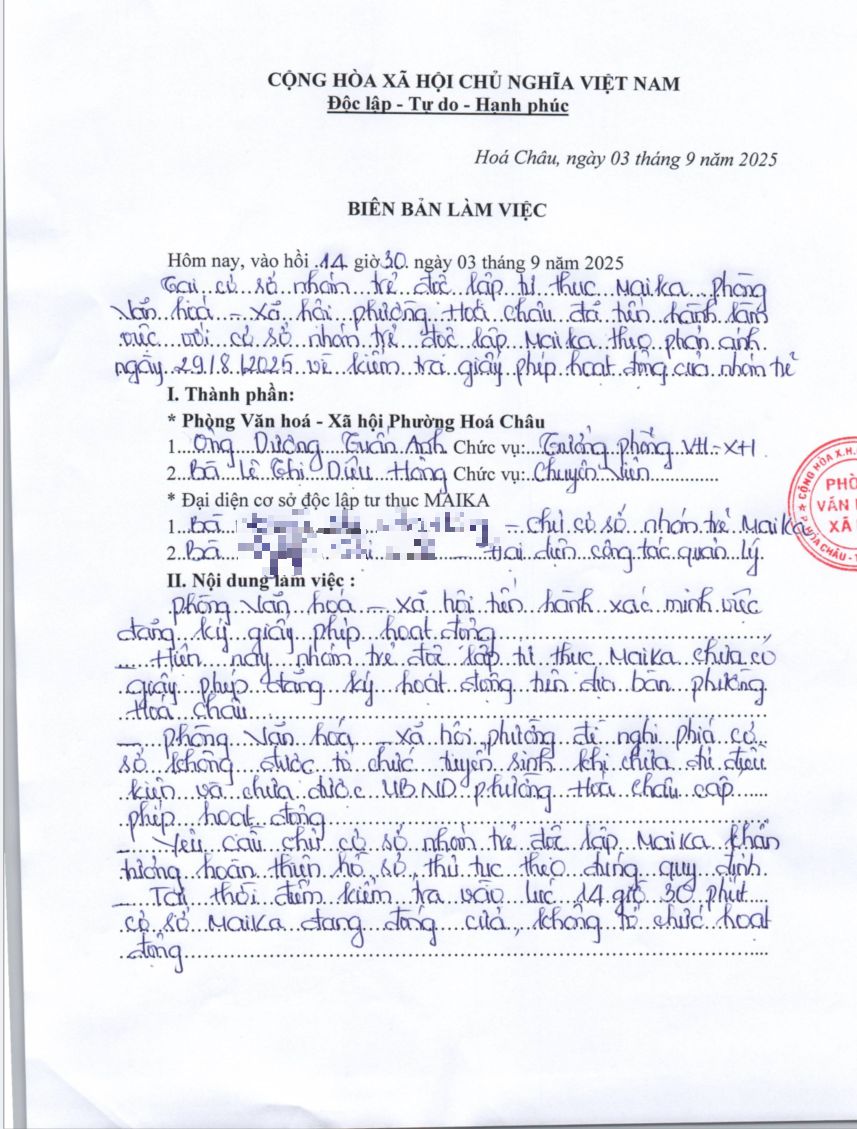 CỘNG HÒA XÃ HỘI CHỦ NGHĨA VIỆT NAM
Độc lập - Tự do - Hạnh phúc
Hoá Châu, ngày 03 tháng 9 năm 2025
BIÊN BẢN LÀM VIỆC
Hôm nay, vào hồi .14 giờ 30. ngày 03 tháng 9 năm 2025
Tại cơ sở nhóm trẻ độc lập tư thục Maika phòng
Văn hoá - xã hội phường Hoá Châu đã tiến hành làm
việc với cơ sở nhóm trẻ độc lập Maika theo phản ánh
ngày 29/8/2025 về kiểm tra giấy phép hoạt động của nhóm trẻ
I. Thành phần:
* Phòng Văn hoá - Xã hội Phường Hoá Châu
1....Ông Dương Tuấn Anh Chức vụ: Trưởng phòng VH-XH
2....Bà Lê Thị Diệu Hồng Chức vụ: Chuyên viên
* Đại diện cơ sở độc lập tư thục MAIKA
1....Bà - Chủ cơ sở nhóm trẻ Maika
2....Bà - Đại diện công tác quản lý
II. Nội dung làm việc :
Phòng Văn hoá - xã hội tiến hành xác minh việc
đăng ký giấy phép hoạt động
- Hiện nay nhóm trẻ độc lập tư thục Maika chưa có
giấy phép đăng ký hoạt động trên địa bàn phường
Hoá Châu
- Phòng Văn hoá - xã hội phường đề nghị phía cơ
sở không được tổ chức tuyển sinh khi chưa đủ điều
kiện và chưa được UBND phường Hoá Châu cấp
phép hoạt động
- Yêu cầu chủ cơ sở nhóm trẻ độc lập Maika khẩn
trương hoàn thiện hồ sơ, thủ tục theo đúng quy định
- Tại thời điểm kiểm tra vào lúc 14 giờ 30 phút
cơ sở Maika đang đóng cửa, không tổ chức hoạt
động
CỘNG HÒA X.H.
PHÒ
VĂN
XÃ
HÓA CHÂU - T